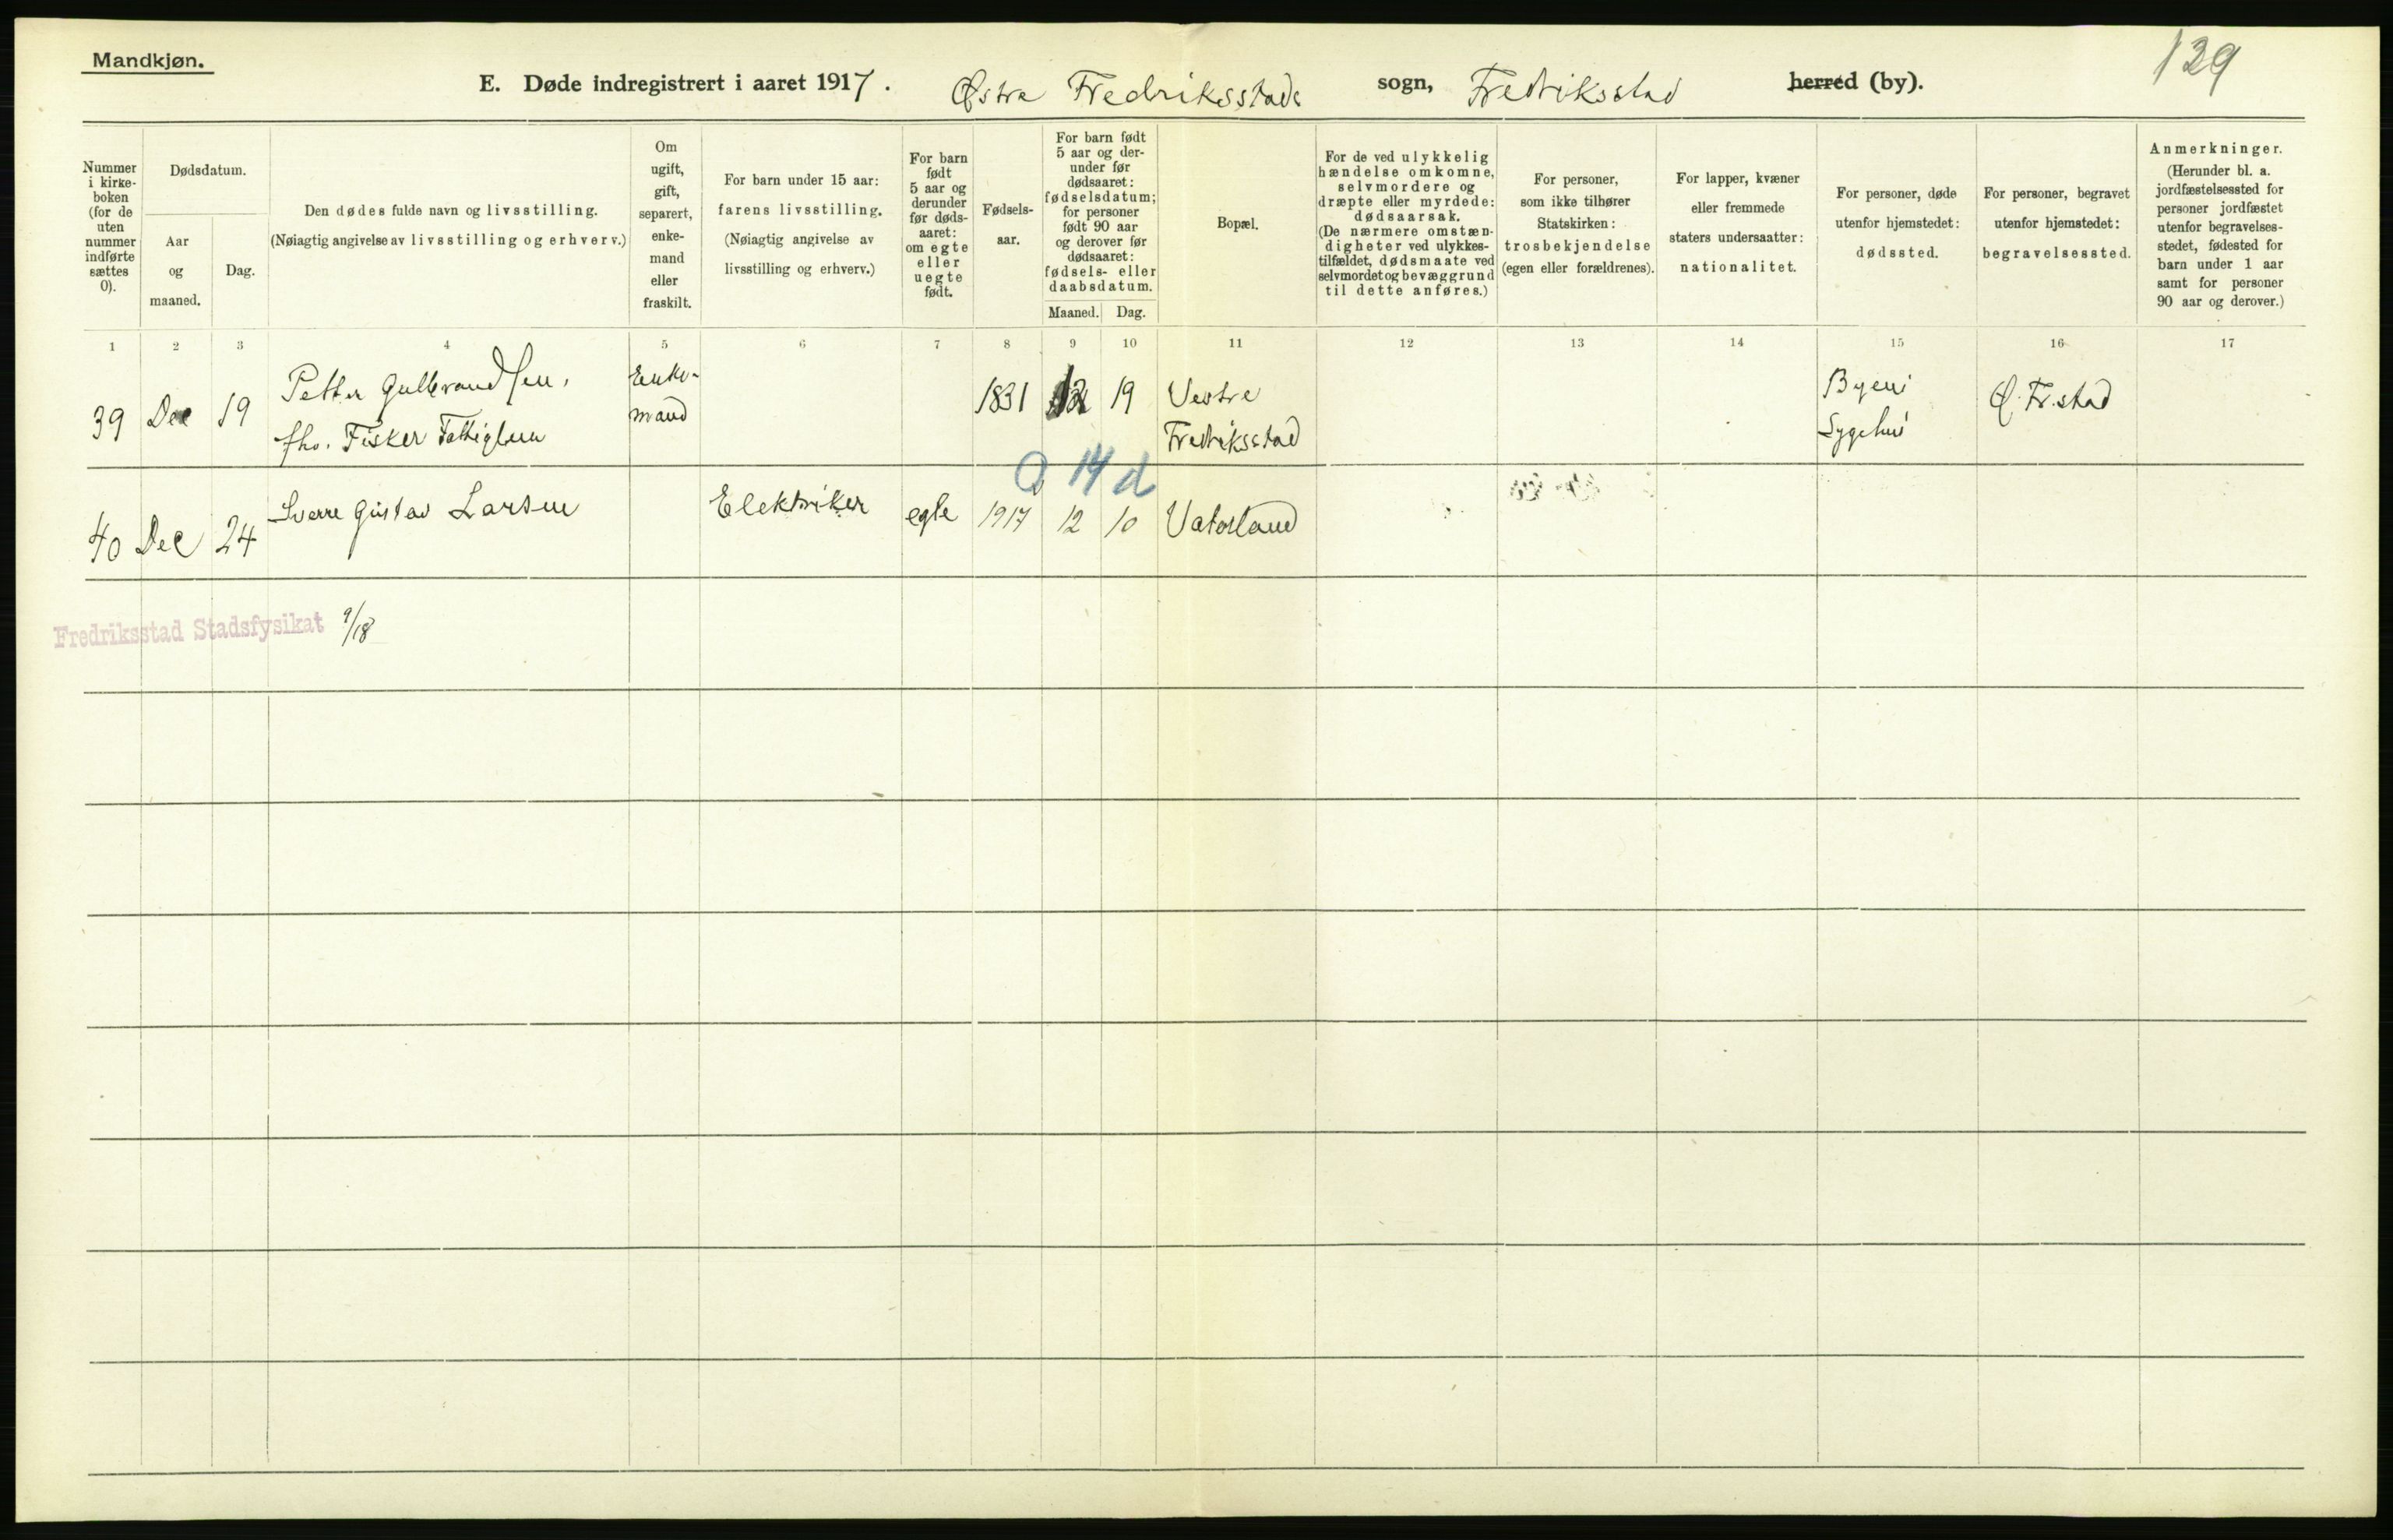 Mandkjøn.
129
E. Døde indregistrert i aaret 1917. Østre Fredriksstads sogn, Fredriksstad herred (by).
Nummer i kirke- boken (for de uten nummer indførte sættes 0).
Dødsdatum.
Aar og maaned.
Dag.
Den dødes fulde navn og livsstilling.
(Nøiagtig angivelse av livsstilling og erhverv.)
Om ugift, gift, separert, enke- mand eller fraskilt.
For barn under 15 aar: farens livsstilling.
(Nøiagtig angivelse av livsstilling og erhverv.)
For barn født 5 aar og derunder før døds- aaret: om egte eller uegte født.
Fødsels- aar.
For barn født 5 aar og der- under før dødsaaret: fødselsdatum; for personer født 90 aar og derover før dødsaaret: fødsels- eller daabsdatum.
Maaned. Dag.
Bopæl.
For de ved ulykkelig hændelse omkomne, selvmordere og dræpte eller myrdede: dødsaarsak.
(De nærmere omstæn- digheter ved ulykkes- tilfældet, dødsmaate ved selvmordet og bevæggrund til dette anføres.)
For personer, som ikke tilhører Statskirken: trosbekjendelse (egen eller forældrenes).
For lapper, kvæner eller fremmede staters undersaatter: nationalitet.
For personer, døde utenfor hjemstedet: dødssted.
For personer, begravet utenfor hjemstedet: begravelsessted.
Anmerkninger.
(Herunder bl. a. jordfæstelsessted for personer jordfæstet utenfor begravelses- stedet, fødested for barn under 1 aar samt for personer 90 aar og derover.)
1 2 3 4 5 6 7 8 9 10 11 12 13 14 15 16 17
39 Dec 19 Petter Gulbrandsen, Enke- 1831 12 19 Vestre Byens Ø. Fr.stad
fhv. Fisker Fattiglem mand Fredriksstad Sygehus
0 14 d
40 Dec 24 Sverre Gustav Larsen Elektriker egte 1917 12 10 Vaterland
Fredriksstad Stadsfysikat 9/18